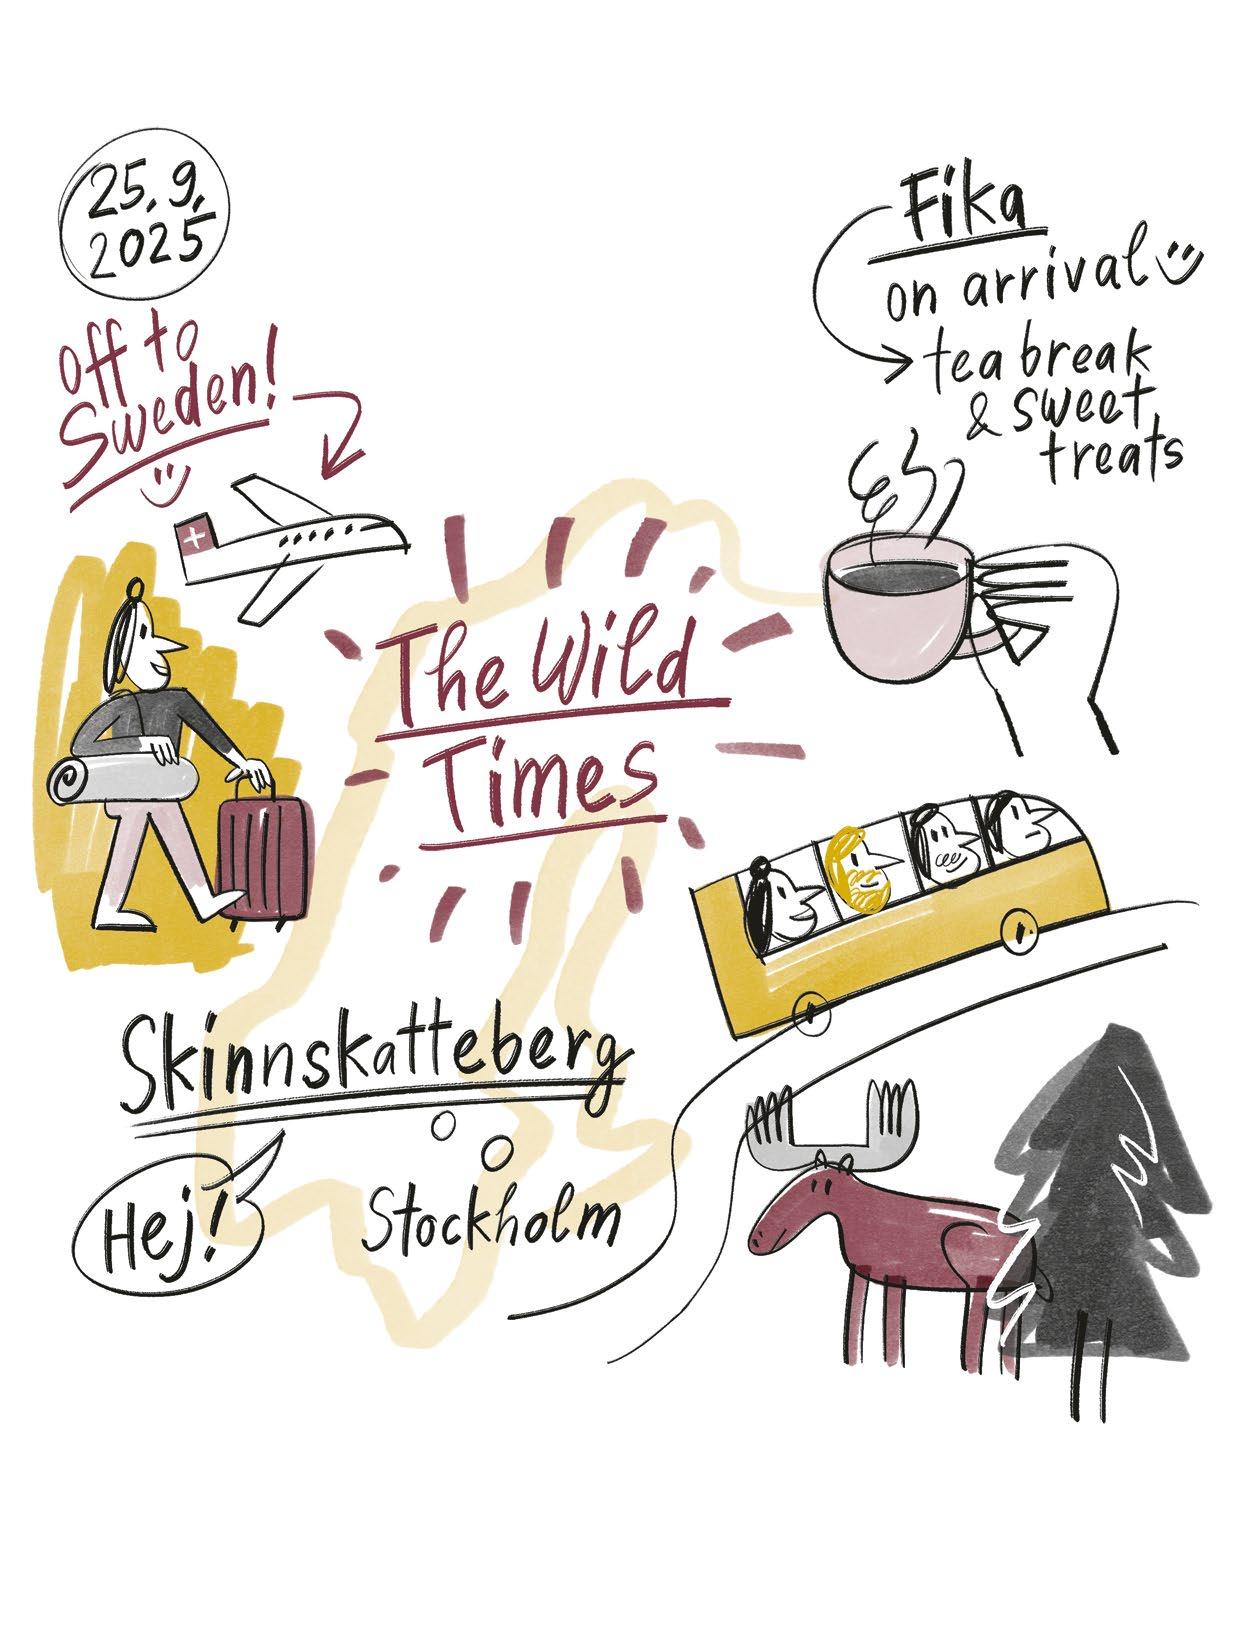 25.9.
2025
off to
Sweden!
Fika
on arrival
tea break
& sweet
treats
The Wild
Times
Skinnskatteberg
Hej!
Stockholm